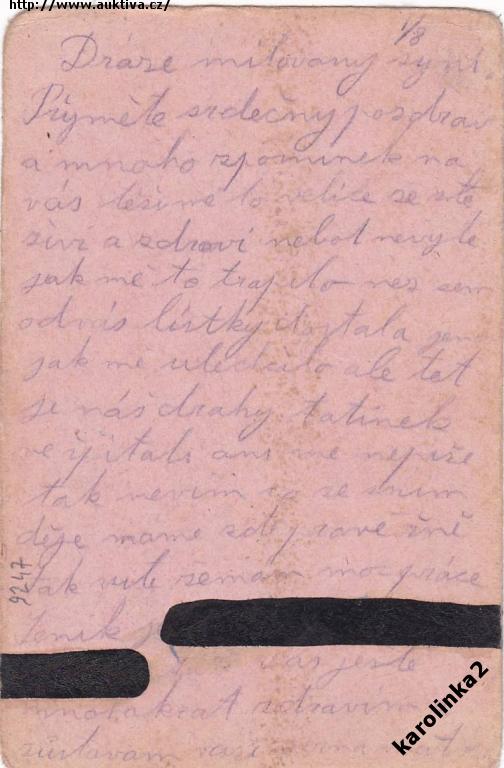 http://www.auktiva.cz/
1/8
Dráze milovaný synu
Přyměte srdečny pozdrav
a mnoho zpominek na
vás těšimě to velice že ste
živi a zdraví nebot nevyte
jak mě to trapilo nez sem
od vás lístky dostala jen
jak mě ulehčilo ale teť
je náš drahy tatinek
ve Itali ani mě nepiše
tak nevim co se snim
děje máme zde pravě žně
tak vite že mám moc práce
Jenik
vas ještě
mnohokrat zdravim
zustavam vaše
9247
karolinka2